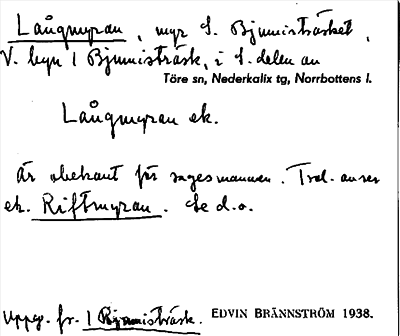 Långmyran, myr S. Bjumisträsket,
V. byn 1 Bjumisträsk, i S. delen av
Töre sn, Nederkalix tg, Norrbottens l.
Långmyran ek.
Är obekant för sagesmannen. Trol. avses
ek. Riftmyran. Se d.o.
Uppg. fr. 1 Bjumisträsk. EDVIN BRÄNNSTRÖM 1938.